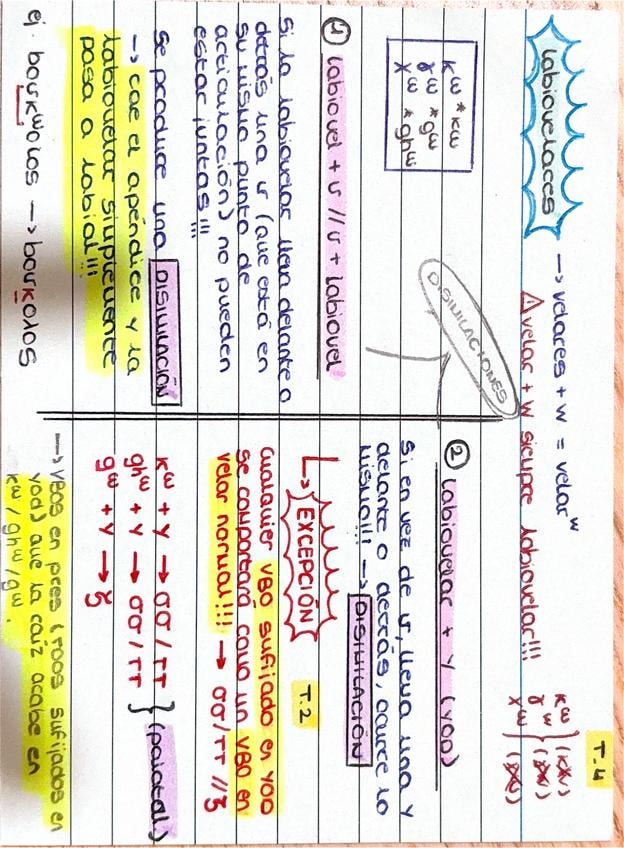 T.4
labiovelaces → velares + w = velarʷ
⚠ velar + w siempre labiovelar!!!
kʷ (kw)
γʷ (γw)
χʷ (χw)
kʷ *kw
γʷ *gw
χʷ *ghw
DISIMILACIONES
① labiovel + u // u + labiovel
Si la labiovelar lleva delante o
detrás una u (que está en
su mismo punto de
articulación) no pueden
estar juntas!!!
Se produce una DISIMILACIÓN
→ cae el apéndice y la
labiovelar simplemente
pasa a labial!!!
ej. boukʷolos → boukolos
② labiovelar + y (yod)
Si en vez de u, lleva una y
delante o detrás, ocurre lo
mismo!!! → DISIMILACIÓN
↳ EXCEPCIÓN T.2
cualquier VBO sufijado en yod
se comportará como un VBO en
velar normal!!! → σσ/ττ // ζ
kʷ + y → σσ/ττ
ghʷ + y → σσ/ττ } (palatal)
gʷ + y → ζ
→ VBOS en pres (TODOS sufijados en
yod) que la raíz acabe en
kʷ/ghʷ/gʷ.